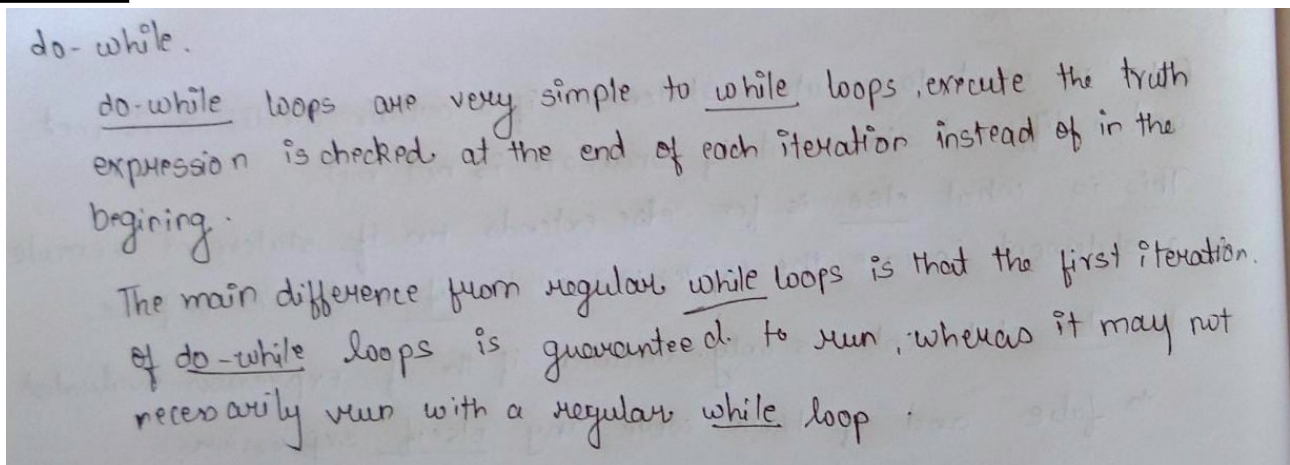 do-while.
do-while loops are very simple to while loops, exrcute the truth
expression is checked at the end of each iteration instead of in the
begining.
The main difference from regular while loops is that the first iteration.
of do-while loops is guaranteed to run, wheras it may not
necessarily run with a regular while loop.